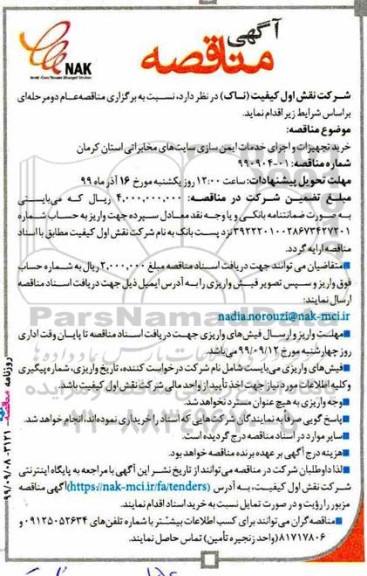 آگهی
مناقصه
NAK
شرکت نقش اول کیفیت (ناک) در نظر دارد، نسبت به برگزاری مناقصه عام دو مرحله‌ای
براساس شرایط زیر اقدام نماید.
موضوع مناقصه:
خرید تجهیزات و اجرای خدمات ایمن سازی سایت‌های مخابراتی استان کرمان
شماره مناقصه: ۰۱-۹۹۰۹۰۴
مهلت تحویل پیشنهادات: ساعت ۱۲:۰۰ روز یکشنبه مورخ ۱۶ آذر ماه ۹۹
مبلغ تضمین شرکت در مناقصه: ۴,۰۰۰,۰۰۰,۰۰۰ ریال که می‌بایستی
به صورت ضمانتنامه بانکی و یا وجه نقد معادل سپرده جهت واریز به حساب شماره
نزد پست بانک به نام شرکت نقش اول کیفیت مطابق با اسناد
مناقصه ارایه گردد.
■ متقاضیان می توانند جهت دریافت اسناد مناقصه مبلغ ۲,۰۰۰,۰۰۰ ریال به شماره حساب
فوق واریز و سپس تصویر فیش واریزی را به آدرس ایمیل ذیل جهت دریافت اسناد مناقصه
ارسال نمایند:
nadia.norouzi@nak-mci.ir
■ مهلت واریز و ارسال فیش‌های واریزی جهت دریافت اسناد مناقصه تا پایان وقت اداری
روز چهارشنبه مورخ ۹۹/۰۹/۱۲ می‌باشد.
■ فیش‌های واریزی می‌بایست شامل نام شرکت درخواست کننده، تاریخ واریزی، شماره پیگیری
و کلیه اطلاعات مورد نیاز جهت اخذ تأیید از واحد مالی شرکت نقش اول کیفیت باشد.
■ وجه واریزی به هیچ عنوان مسترد نخواهد شد.
■ پاسخ گویی صرفا به نمایندگان شرکت‌هایی که اسناد را خریداری نموده‌اند، انجام خواهد شد.
■ سایر موارد در اسناد مناقصه درج گردیده است.
■ هزینه درج آگهی بر عهده برنده مناقصه خواهد بود.
■ لذا داوطلبان شرکت در مناقصه می‌توانند از تاریخ نشر این آگهی با مراجعه به پایگاه اینترنتی
شرکت نقش اول کیفیت، به آدرس (https://nak-mci.ir/fa/tenders) آگهی مناقصه
مزبور را رؤیت و در صورت تمایل نسبت به خرید اسناد اقدام نمایند.
■ مناقصه گران می‌توانند برای کسب اطلاعات بیشتر با شماره تلفن‌های ۰۹۱۲۵۰۵۲۶۳۴ و
۸۱۷۱۷۸۰۶ (واحد زنجیره تأمین) تماس حاصل نمایند.
روزنامه مناقصه ۳۱۲۱ - ۹۹/۰۹/۰۸
ParsNamadData